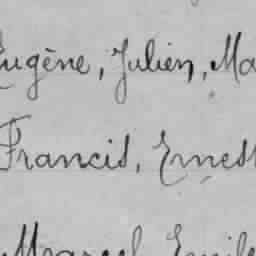 Eugène, Julien, Ma
Francis, Ernest
Marcel Emile